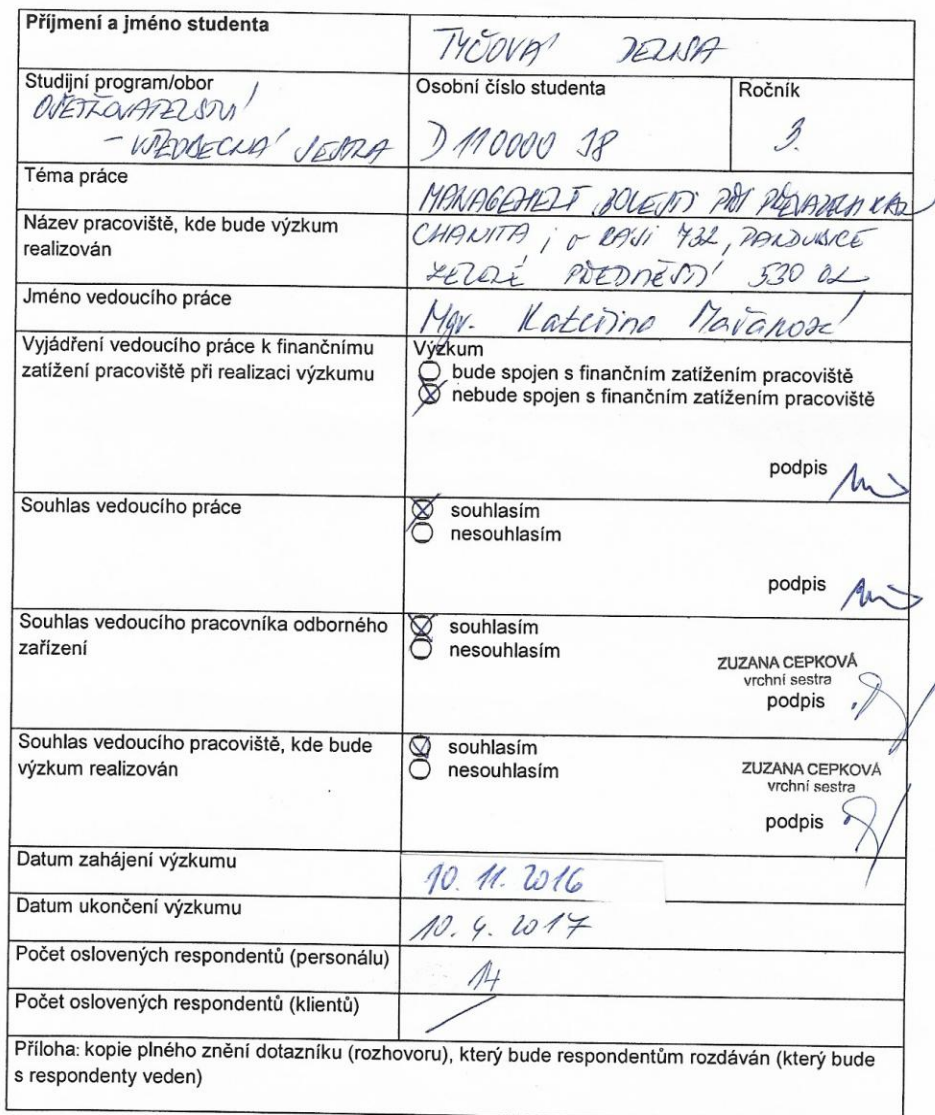 Příjmení a jméno studenta
TYČOVÁ DENISA
Studijní program/obor
OŠETŘOVATELSTVÍ
- VŠEOBECNÁ SESTRA
Osobní číslo studenta
D 110000 38
Ročník
3.
Téma práce
MANAGEMENT BOLESTI PŘI PŘEVAZECH RAN
Název pracoviště, kde bude výzkum
realizován
CHARITA ; 732, PARDUBICE
ZELENÉ PŘEDMĚSTÍ 530 02
Jméno vedoucího práce
Mgr. Kateřina
Vyjádření vedoucího práce k finančnímu
zatížení pracoviště při realizaci výzkumu
Výzkum
bude spojen s finančním zatížením pracoviště
nebude spojen s finančním zatížením pracoviště
podpis
Souhlas vedoucího práce
souhlasím
nesouhlasím
podpis
Souhlas vedoucího pracovníka odborného
zařízení
souhlasím
nesouhlasím
ZUZANA CEPKOVÁ
vrchní sestra
podpis
Souhlas vedoucího pracoviště, kde bude
výzkum realizován
souhlasím
nesouhlasím
ZUZANA CEPKOVÁ
vrchní sestra
podpis
Datum zahájení výzkumu
10. 11. 2016
Datum ukončení výzkumu
10. 4. 2017
Počet oslovených respondentů (personálu)
14
Počet oslovených respondentů (klientů)
Příloha: kopie plného znění dotazníku (rozhovoru), který bude respondentům rozdáván (který bude
s respondenty veden)